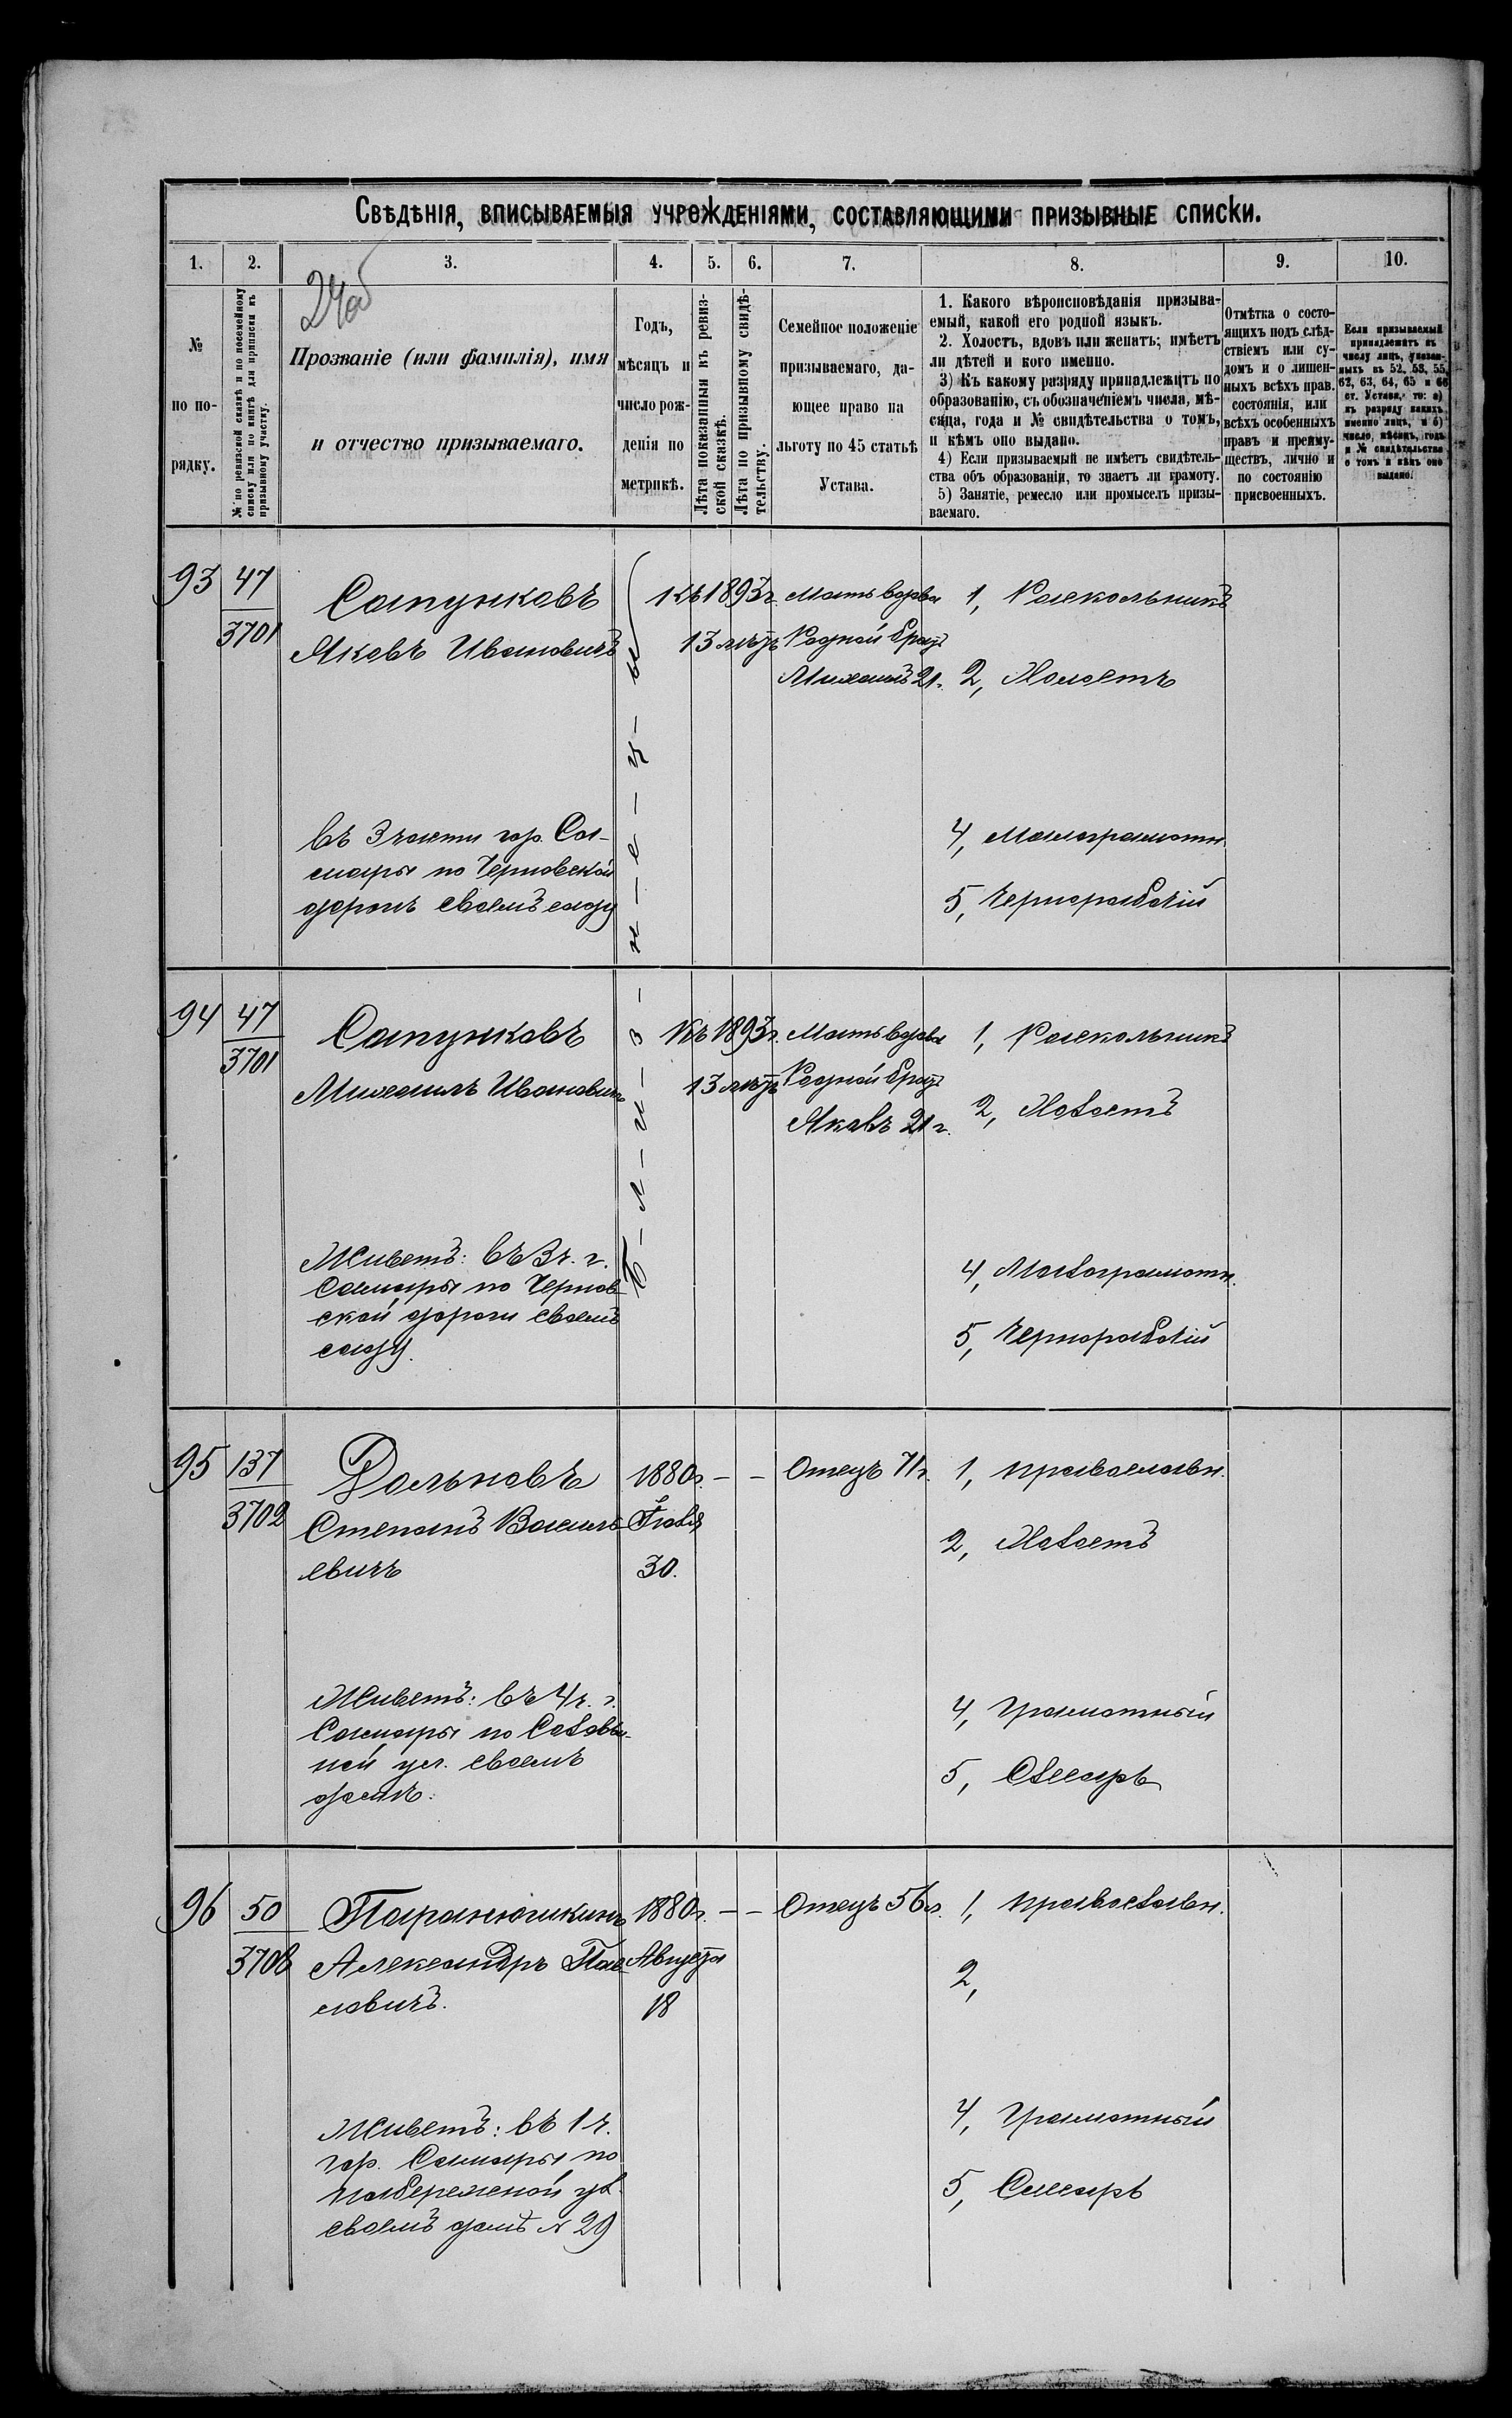 Свѣдѣнія, вписываемыя учрежденіями, составляющими призывные списки.
1. 2. 3. 4. 5. 6. 7. 8. 9. 10.
24об
№ по порядку.
№ по ревизской сказкѣ и по посемейному списку или по книгѣ для приписки къ призывному участку.
Прозваніе (или фамилія), имя
и отчество призываемаго.
Годъ,
мѣсяцъ и
число рож-
денія по
метрикѣ.
Лѣта показанныя въ ревиз-
ской сказкѣ.
Лѣта по призывному свидѣ-
тельству.
Семейное положеніе
призываемаго, да-
ющее право на
льготу по 45 статьѣ
Устава.
1. Какого вѣроисповѣданія призыва-
емый, какой его родной языкъ.
2. Холостъ, вдовъ или женатъ; имѣетъ
ли дѣтей и кого именно.
3) Къ какому разряду принадлежитъ по
образованію, съ обозначеніемъ числа, мѣ-
сяца, года и № свидѣтельства о томъ,
и кѣмъ оно выдано.
4) Если призываемый не имѣетъ свидѣтель-
ства объ образованіи, то знаетъ ли грамоту.
5) Занятіе, ремесло или промыселъ призы-
ваемаго.
Отмѣтка о состо-
ящихъ подъ слѣд-
ствіемъ или су-
домъ и о лишен-
ныхъ всѣхъ прав.
состоянія, или
всѣхъ особенныхъ
правъ и преиму-
ществъ, лично и
по состоянію
присвоенныхъ.
Если призываемый
принадлежитъ къ
числу лицъ, указан-
ныхъ въ 52, 53, 55,
62, 63, 64, 65 и 66
ст. Устава, то: а)
къ разряду какихъ
именно лицъ, и б)
число, мѣсяцъ, годъ
и № свидѣтельства
о томъ и кѣмъ оно
выдано.
93 47
3701
Сапунковъ
Яковъ Ивановичъ
1893г.
13
Мать вдова
Родной братъ
Михаилъ 21г.
1, Раскольникъ
2, Холостъ
въ 3 части гор. Са-
мары по Черновской
дорогѣ своемъ саду
4, Малограмотн.
5, Чернорабочій
Б-л-и-з-н-е-ц-ы
94 47
3701
Сапунковъ
Михаилъ Ивановичъ
1893г.
13
Мать вдова
Родной братъ
Яковъ 21г.
1, Раскольникъ
2, Холостъ
Живетъ: въ 3 ч. г.
Самары по Чернов-
ской дороги своемъ
саду.
4, Малограмотн.
5, Чернорабочій
95 137
3702
Дольновъ
Степанъ Василь-
евичъ
1880г.
Іюля
30.
— —
Отецъ 71г.
1, православн.
2, Холостъ
Живетъ: въ 4 ч. г.
Самары по Соловьи-
ной ул. своемъ
домѣ.
4, Грамотный
5, Слесарь
96 50
3708
Паранюшкинъ
Александръ Пав-
ловичъ.
1880г.
Августа
18
— —
Отецъ 56л.
1, православн.
2,
Живетъ: въ 1 ч.
гор. Самары по
набережной ул.
своемъ домѣ № 29
4, Грамотный
5, Слесарь